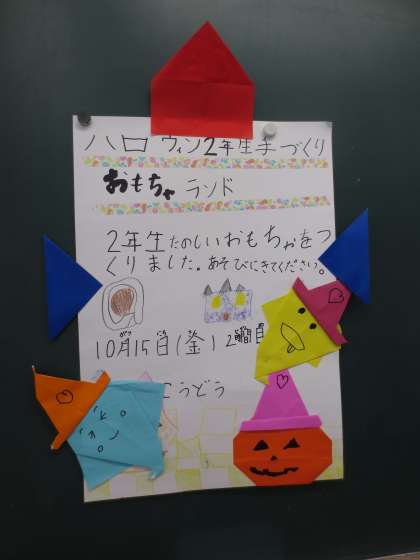 ハロウィン2年生手づくり
おもちゃランド
2年生たのしいおもちゃをつ
くりました。あそびにきてください。
10月15日(金)2時間目
こうどう